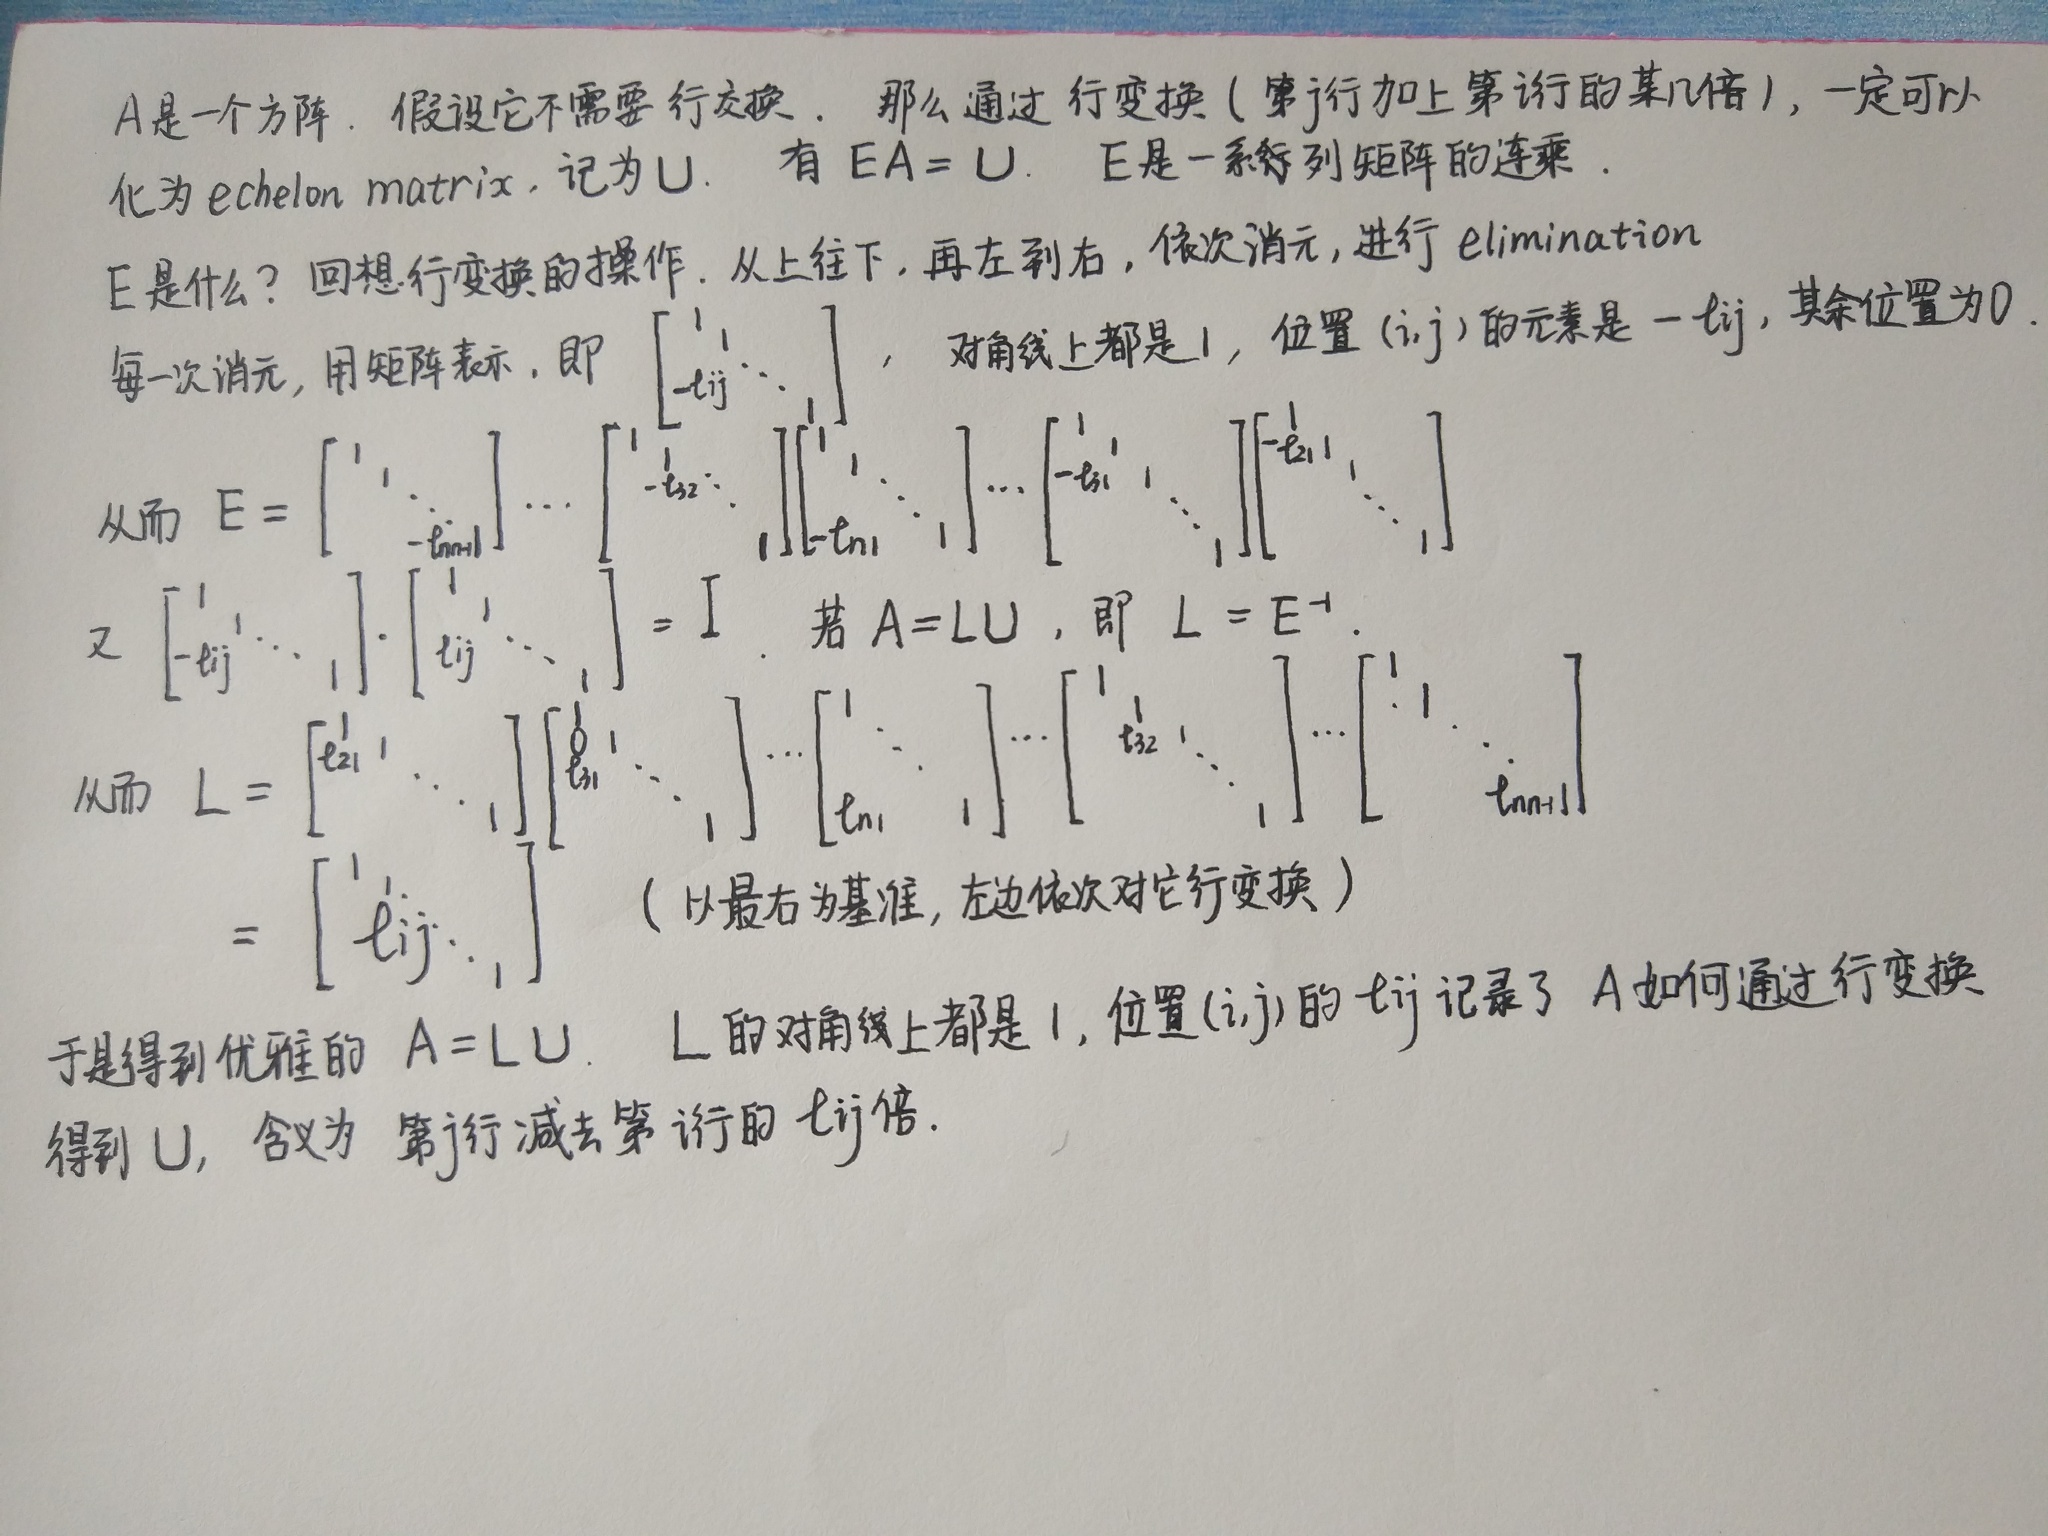 A是一个方阵. 假设它不需要行交换. 那么通过行变换(第j行加上第i行的某几倍), 一定可以
化为echelon matrix, 记为U. 有 EA = U. E是一系列矩阵的连乘.
E是什么? 回想行变换的操作. 从上往下, 再左到右, 依次消元, 进行 elimination
每一次消元, 用矩阵表示, 即 [1 1 -tij ⋱ 1], 对角线上都是1, 位置(i,j)的元素是 -tij, 其余位置为0.
从而 E = [1 1 ⋱ -tnn-1 1] ⋯ [1 1 -t32 ⋱ 1][1 1 ⋱ -tn1 1] ⋯ [1 1 -t31 1 ⋱ 1][1 -t21 1 1 ⋱ 1]
又 [1 1 -tij ⋱ 1]·[1 1 tij ⋱ 1] = I. 若 A=LU, 即 L = E⁻¹.
从而 L = [1 t21 1 ⋱ 1][1 0 1 t31 ⋱ 1] ⋯ [1 ⋱ tn1 1] ⋯ [1 1 t32 1 ⋱ 1] ⋯ [1 1 ⋱ tnn-1 1]
= [1 1 tij ⋱ 1] (以最右为基准, 左边依次对它行变换)
于是得到优雅的 A=LU. L的对角线上都是1, 位置(i,j)的tij记录了 A如何通过行变换
得到U, 含义为 第j行减去第i行的tij倍.